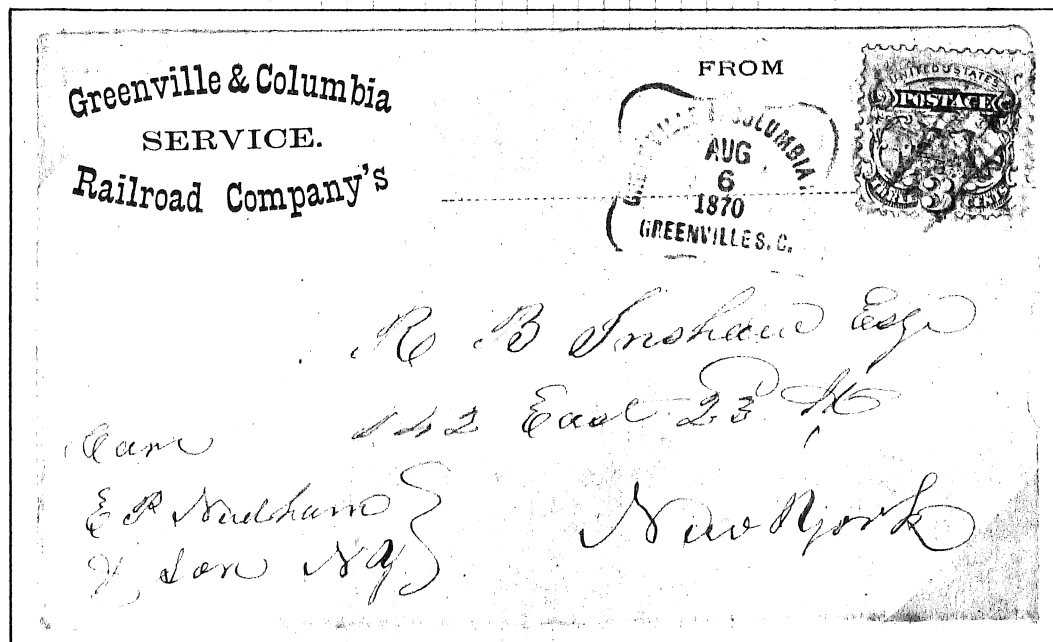 Greenville & Columbia
SERVICE.
Railroad Company's
FROM
UNITED STATES
POSTAGE
GREENVILLE & COLUMBIA
AUG
6
1870
GREENVILLE S. C.
R B Inshaw Esqr
142 East 23 St
New York
Care
E P Needham
& Son NY